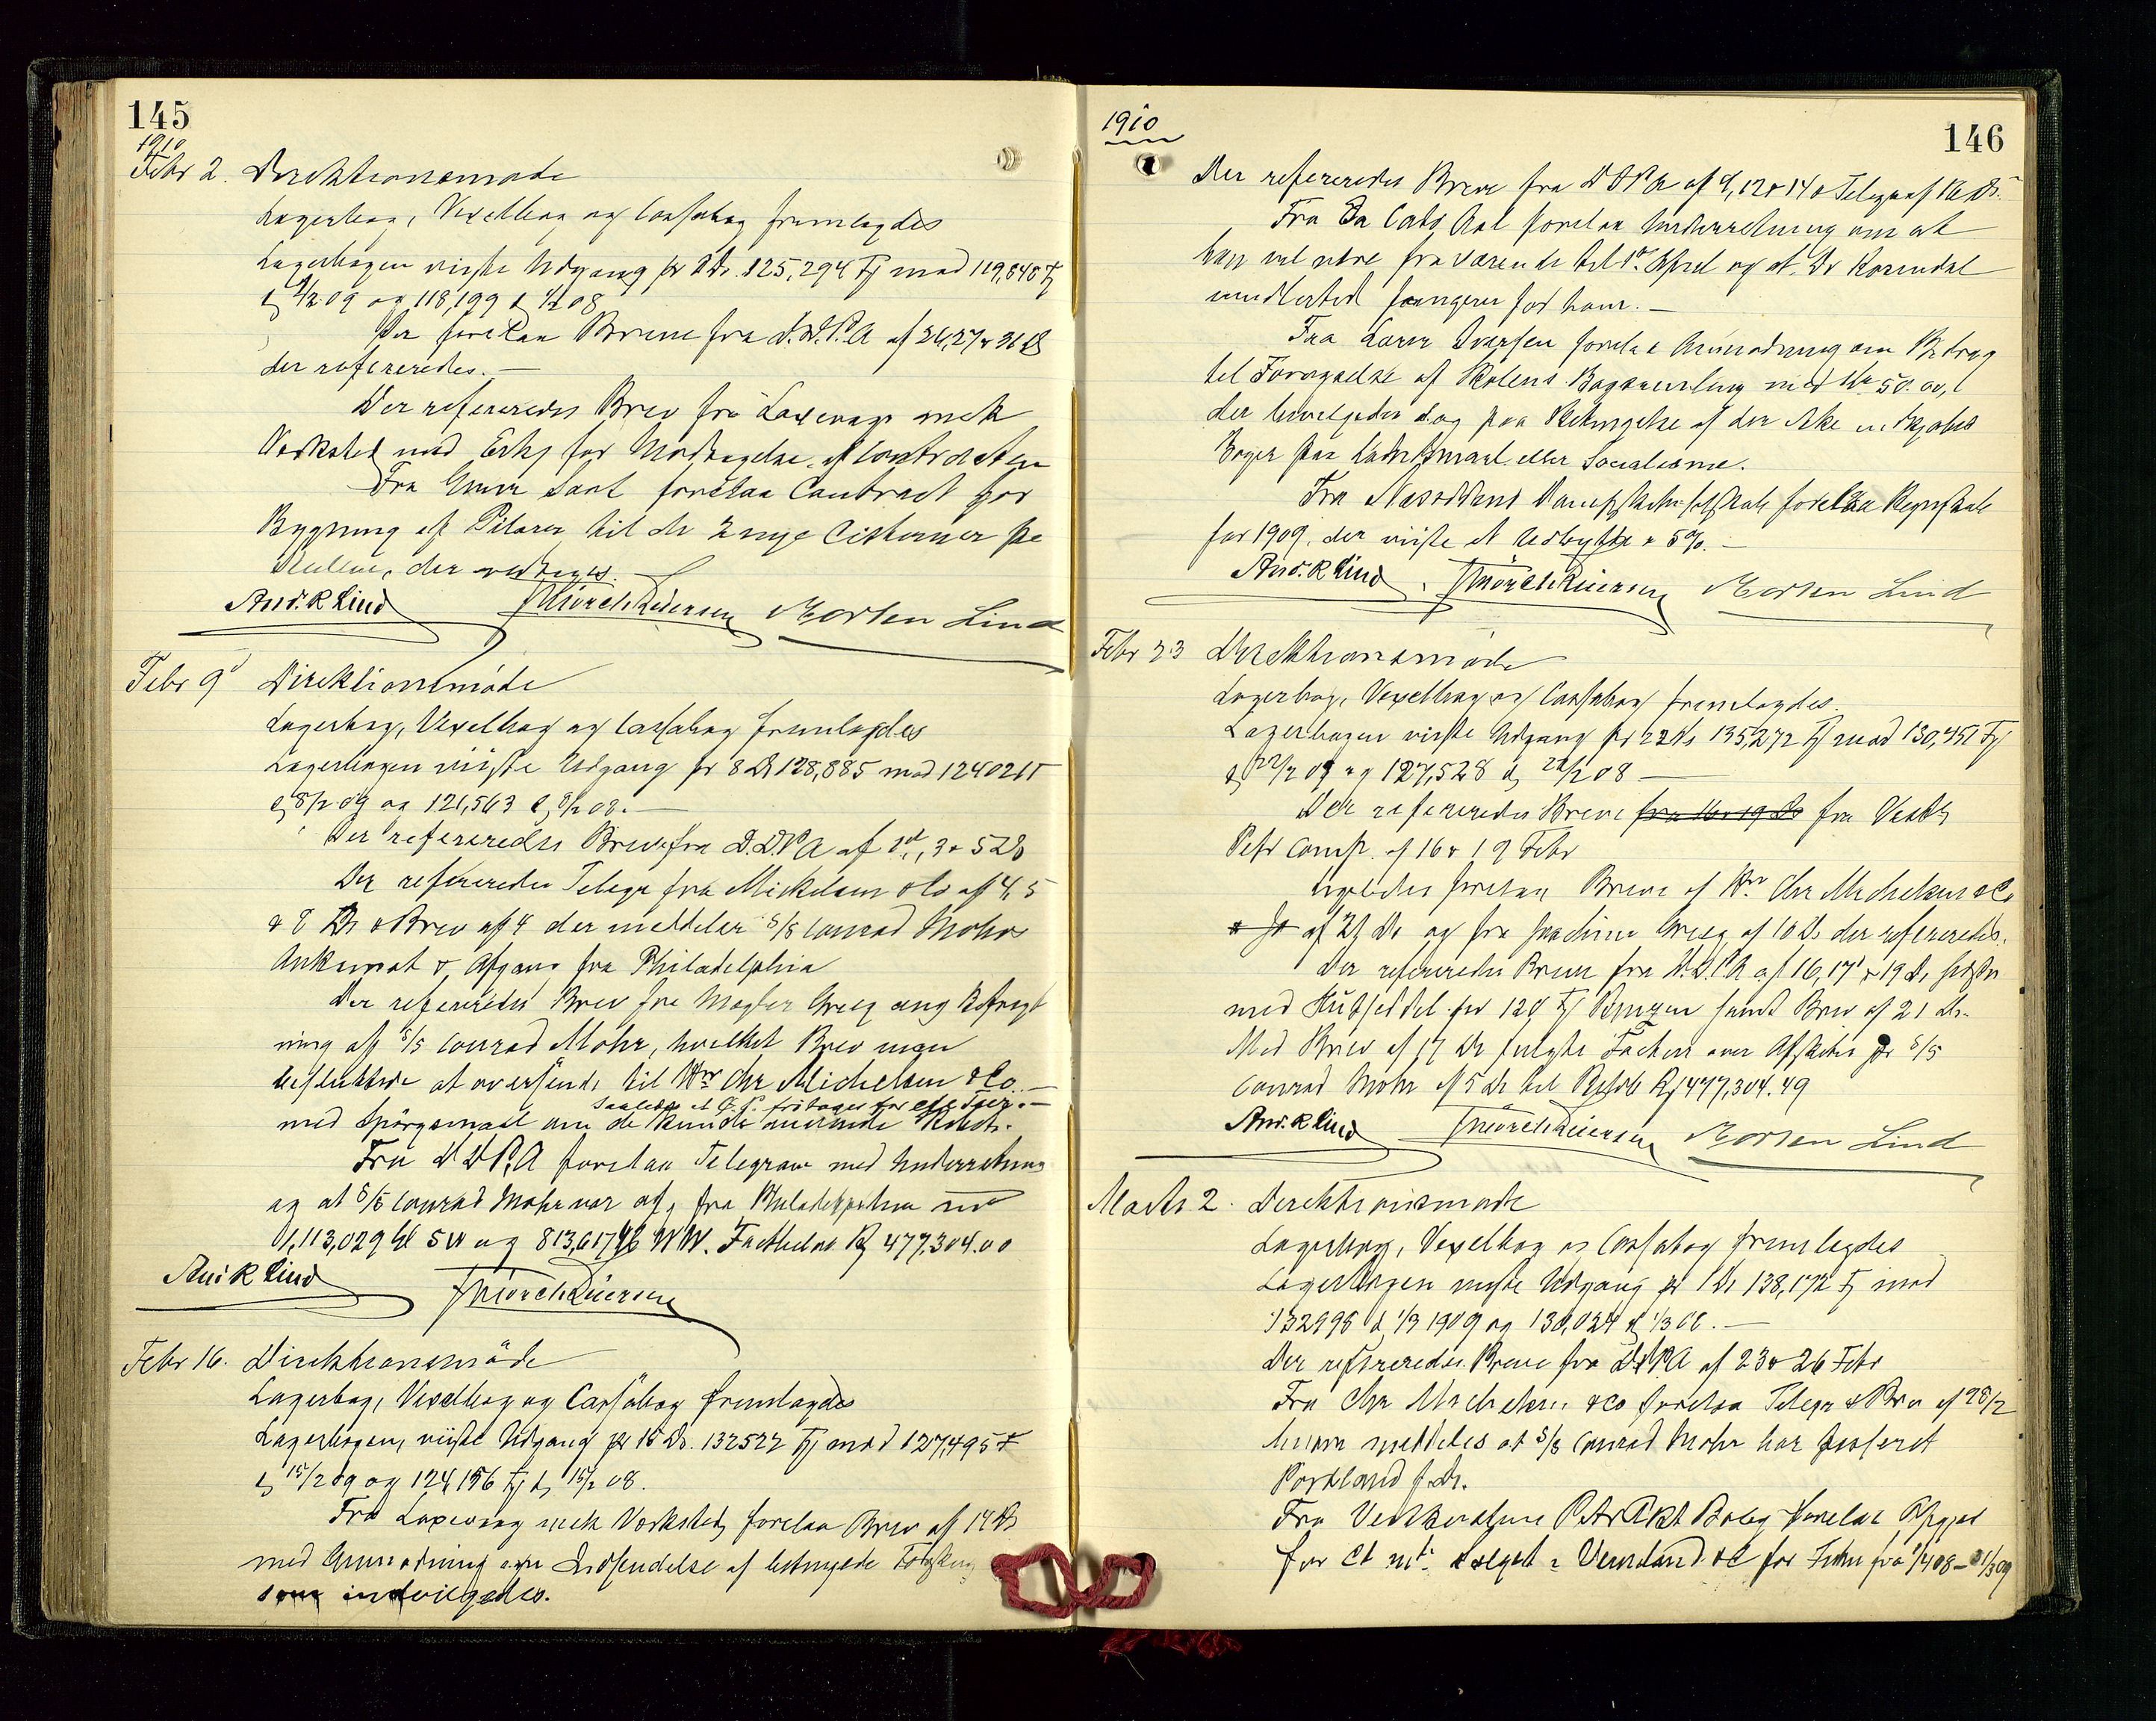 145
1910
Febr 2. Direktionsmøde
Lagerbog, Vexelbog og Cassabog fremlagdes
Lagerbogen viiste Udgang pr 1 Ds. 125,294 Fj mod 119,848 Fj
1/2 09 og 118,199 1/2 08
Der forelaa Breve fra D.D.P.A af 26, 27 & 31 Ds
der refereredes. —
Der refereredes Brev fra Laxevaags mek
Værksted med Erkj for Modtagelse af Contracten
Fra Einar Sant forelaa Contract for
Bygning af Pilarer til de 2 nye Cisterner pa
der vedtoges.
And. R Lind Mørch Reiersen Morten Lind
Febr 9d Direktionsmøde
Lagerbog, Vexelbog og Cassabog fremlagdes
Lagerbogen viiste Udgang pr 8 Ds 128,885 mod 124026 F
8/2 09 og 121,563 8/2 08. —
Der refereredes Breve fra D.D.P.A af 1st, 3 & 5 Ds
Der refereredes Telegr fra Michelsen & Co af 4, 5
& 8 Ds & Brev af 4 der meddeler S/S Conrad Mohrs
Ankomst & Afgang fra Philadelphia
Der refereredes Brev fra Mægler Grieg ang Befragt
ning af S/S Conrad Mohr, hvilket Brev man
besluttede at oversende til Hrr Chr Michelsen & Co. —
saaledes at fritages for
med Spörgsmaal om de kunde
Fra D D P A forelaa Telegram med Underretning
og at S/S Conrad Mohr var afg fra Philadelphia med
1,113,029 Gl SW og 813,617 WW. Facturero Rj 477,304.00
And R Lind Mørch Reiersen
Febr 16. Direktionsmöde
Lagerbog, Vexelbog og Cassabog fremlagdes
Lagerbogen, viiste Udgang pr 15 Ds. 132522 Fj mod 127,495 F
15/2 09 og 124,156 Fj 15/2 08.
Fra Laxevaag mek Værksted, forelaa Brev af 14 Ds
med Anmodning om Indsendelse af betingede
som indvilgedes.
1910
146
Der refereredes Breve fra D D P A af 9, 12 & 14 & Telegr af 16 Ds.
Fra Cato Aal forelaa Underretning om at
han vil være fraværende til 1st April og at Dr Rosendal
imidlertid fungerer for ham. —
Fra Larer Iversen forelaa Anmodning om Bidrag
til Forøgelse af Skolens Bogsamling med Kr. 50.00,
der bevilgedes dog paa Betingelse af der ikke indkjøbes
Bøger paa Landsmaal eller Socialisme.
Fra Næsoddens Dampskibsselskab forelaa Regnskab
for 1909, der viiste et Udbytte a 5%. —
And. R Lind Mørch Reiersen Morten Lind
Febr 23 Direktionsmöde
Lagerbog, Vexelbog og Cassabog fremlagdes.
Lagerbogen viiste Udgang pr 22 Ds 135,272 Fj mod 130,451 Fj
22/2 09 og 127,528 22/2 08 —
Der refereredes Breve fra 16 & 19 Ds fra Vestl
Petr Comp. af 16 & 19 Febr
Ligeledes forelaa Breve af Hrr Chr Michelsen & Co
af 21 Ds og fra Joachim Grieg af 10 Ds der refereredes.
Der refereredes Breve fra D.D.P.A af 16, 17 & 19 Ds
med Slutseddel for 120 Fj Benzin samt Brev af 21 Ds.
Med Brev af 17 Ds fulgte Factura over Afskibn pr S/S
Conrad Mohr af 5 Ds til Beløb Rj 477,304.49
And. R Lind Mørch Reiersen Morten Lind
Marts 2. Direktionsmøde
Lagerbog, Vexelbog og Cassabog fremlagdes
Lagerbogen viiste Udgang pr 1 Ds 138,172 Fj mod
132998 1/3 1909 og 130,024 1/3 08. —
Der refereredes Breve fra DDPA af 23 & 26 Febr
Fra Chr Michelsen & Co forelaa Telegr & Brev af 28/2
hvori meddeles at S/S Conrad Mohr har passeret
Portland f. Ds.
Fra Vestlandske Petr forelaa Opgjør
for Værmland & C for Febr fra 1/4 08 — 31/3 09